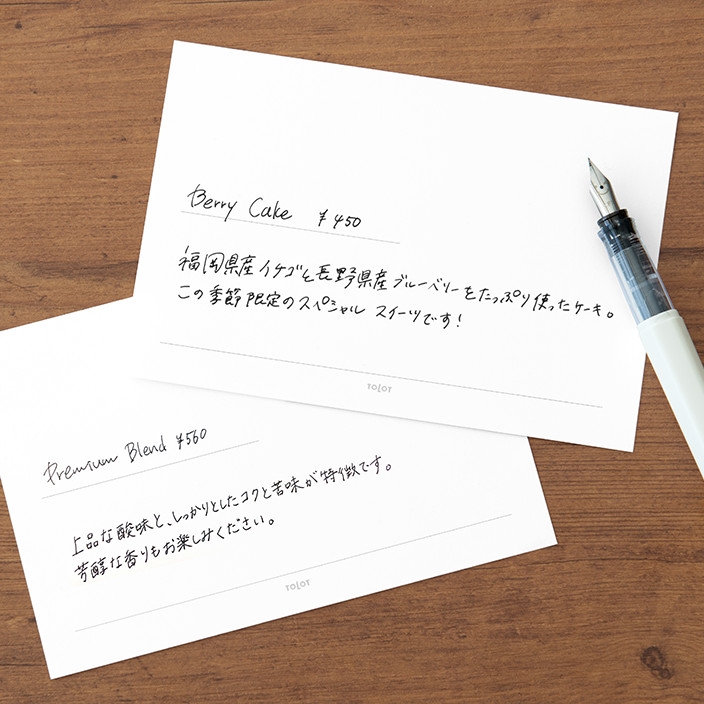 Berry Cake ¥450
福岡県産イチゴと長野県産ブルーベリーをたっぷり使ったケーキ。
この季節限定のスペシャル スイーツです!
rolor
Premium Blend ¥560
上品な酸味と、しっかりとしたコクと苦味が特徴です。
芳醇な香りもお楽しみください。
rolor